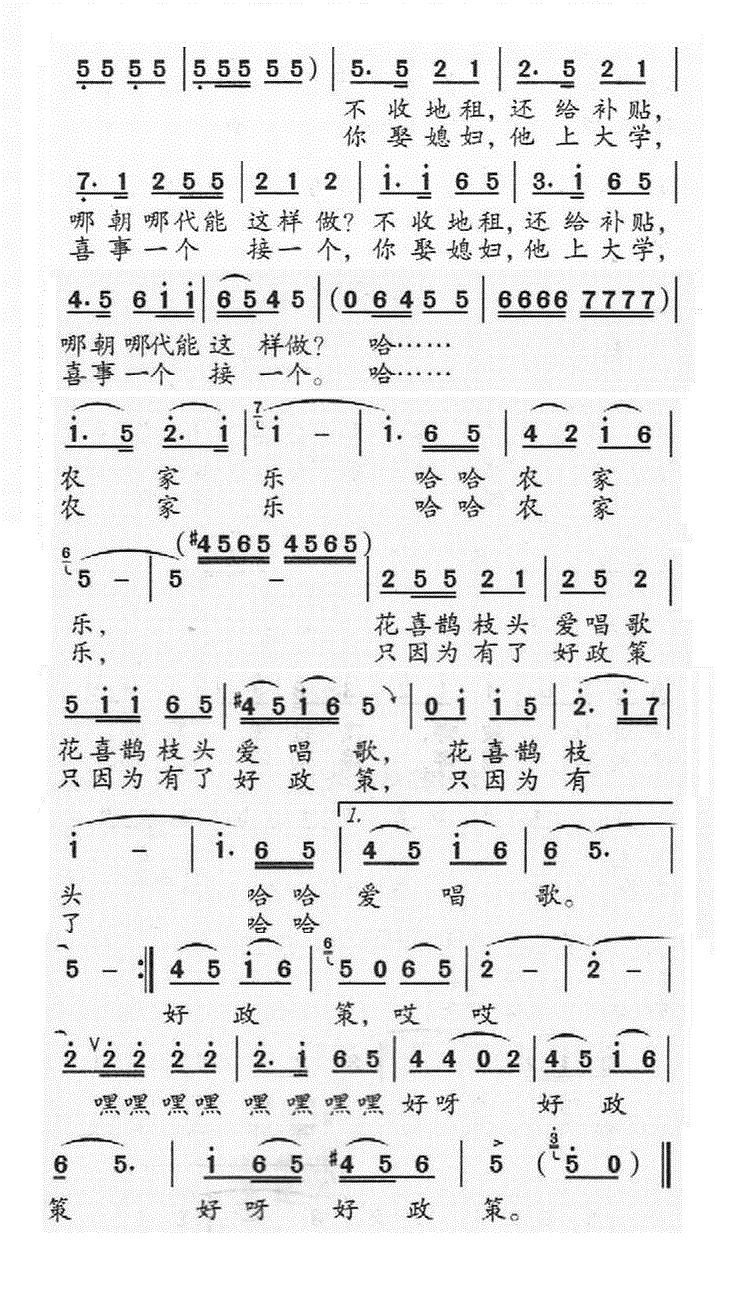 5 5 5 5 | 5 5 5 5 5 ) | 5. 5 2 1 | 2. 5 2 1 |
不 收 地 租, 还 给 补 贴,
你 娶 媳 妇, 他 上 大 学,
7. 1 2 5 5 | 2 1 2 | 1. 1 6 5 | 3. 1 6 5 |
哪 朝 哪 代 能 这 样 做? 不 收 地 租, 还 给 补 贴,
喜 事 一 个 接 一 个, 你 娶 媳 妇, 他 上 大 学,
4. 5 6 1 1 | 6 5 4 5 | ( 0 6 4 5 5 | 6666 7777 ) |
哪 朝 哪 代 能 这 样 做? 哈……
喜 事 一 个 接 一 个。 哈……
1. 5 2. 1 | 7 1 – | 1. 6 5 | 4 2 1 6 |
农 家 乐 哈 哈 农 家
农 家 乐 哈 哈 农 家
6 5 – | 5 – ( #4565 4565 ) | 2 5 5 2 1 | 2 5 2 |
乐, 花 喜 鹊 枝 头 爱 唱 歌
乐, 只 因 为 有 了 好 政 策
5 1 1 6 5 | #4 5 1 6 5 | 0 1 1 5 | 2. 1 7 |
花 喜 鹊 枝 头 爱 唱 歌, 花 喜 鹊 枝
只 因 为 有 了 好 政 策, 只 因 为 有
1.
1 – | 1. 6 5 | 4 5 1 6 | 6 5. |
头 哈 哈 爱 唱 歌。
了 哈 哈
5 – :‖ 4 5 1 6 | 6 5 0 6 5 | 2 – | 2 – |
好 政 策, 哎 哎
2 ∨ 2 2 2 2 | 2. 1 6 5 | 4 4 0 2 | 4 5 1 6 |
嘿 嘿 嘿 嘿 嘿 嘿 嘿 嘿 好 呀 好 政
6 5. | 1 6 5 #4 5 6 | > 5 ( 3 5 0 ) ‖
策 好 呀 好 政 策。